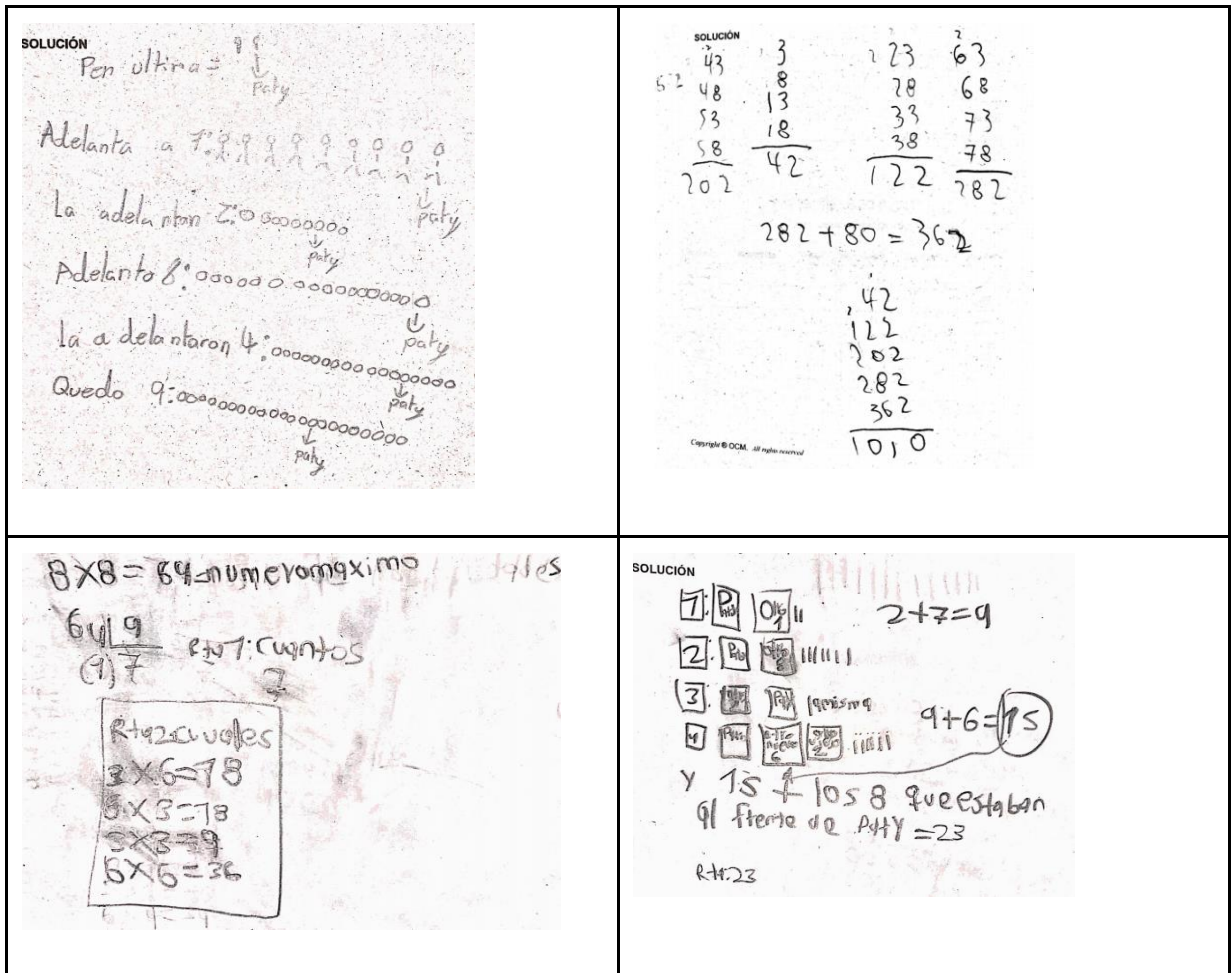 SOLUCIÓN
Pen ultima=
paty
Adelanta a 7:
paty
La adelantan 2:
paty
Adelanto 8:
paty
la adelantaron 4:
paty
Quedo 9:
paty
SOLUCIÓN
43 3 23 63
48 8 28 68
53 13 33 73
58 18 38 78
202 42 122 282
282 + 80 = 362
42
122
202
282
362
1010
Copyright © OCM. All rights reserved
8X8= 64=numeromaximo
64 9
(1) 7
Rta1:cuantos
7
Rta2:cuales
3X6=18
6X3=18
3X3=9
6X6=36
SOLUCIÓN
1:
2+7=9
2:
3:
la misma
4:
9+6=15
Y 15 + los 8 que estaban
al frente de PattY =23
Rta:23